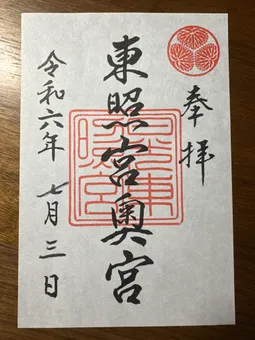 奉拝
東照宮奥宮
令和六年 七月三日